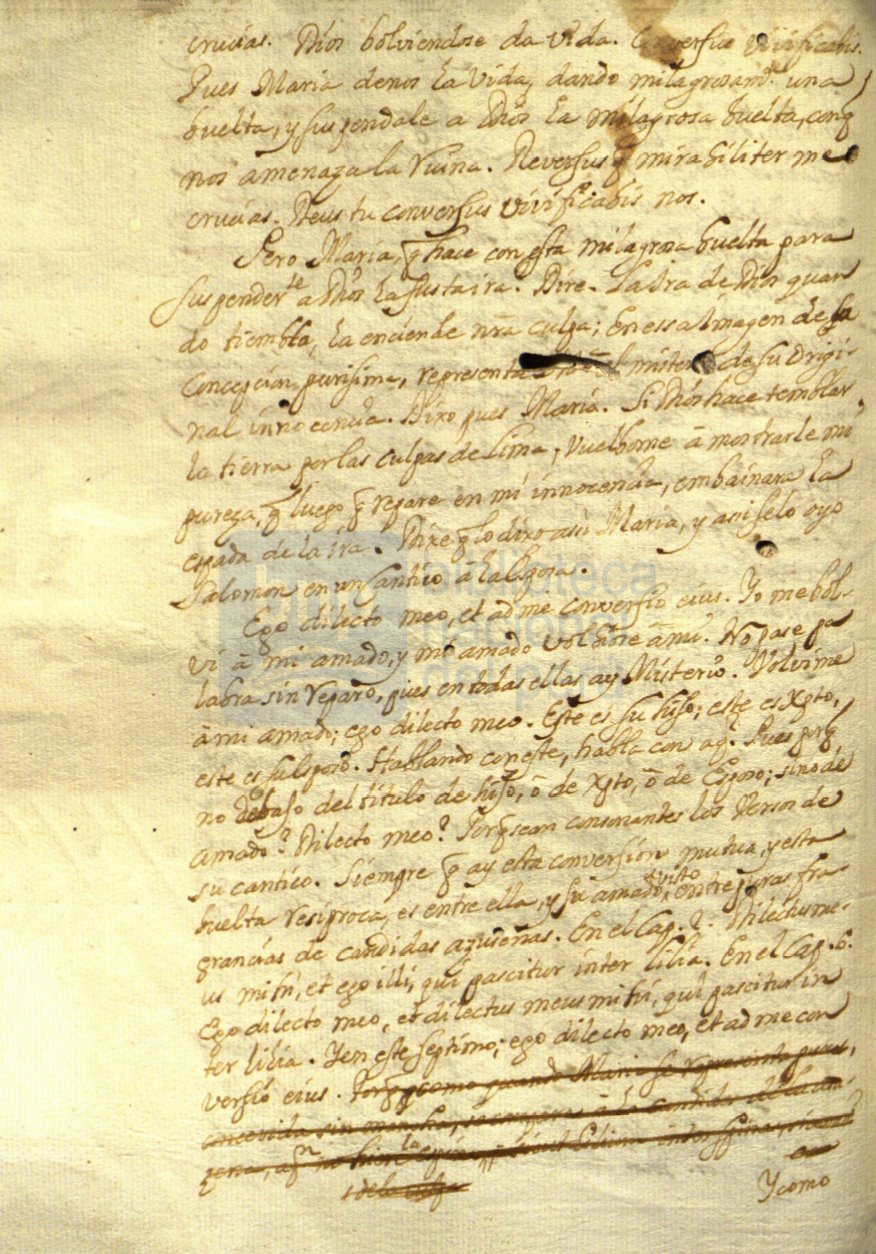 crucias. Dios bolviendose da vida. Conversus vivificabis.
Pues Maria denos la vida, dando milagrosamte. una
buelta, y suspendale a Dios la milagrosa buelta, conq
nos amenaza la ruina. Reversusq mirabiliter me
crucias. Deus tu conversus vivificabis nos.
Pero Maria, q hace con esta milagrosa buelta para
suspenderle a Dios la justa ira? Dire. La Ira de Dios quan
do tiembla, la enciende nra culpa; En essa Imagen de la
Concepcion purisima, representa el misterio de su Origi-
nal innocencia. Dixo pues Maria. Si Dios hace temblar
la tierra por las culpas de Lima, vuelbome à mostrarle mi
pureza, q luego q repare en mi innocencia, embainara la
espada de la ira. Dixe q lo dixo assi Maria, y assi se lo oyo
Salomon en un Cantico a la Esposa.
Ego dilecto meo, et ad me conversio eius. Yo me bol-
vi à mi amado, y mi amado volviose à mi. No pase pa
labra sin reparo, pues en todas ellas ay Misterio. Volvime
à mi amado; ego dilecto meo. Este es su hijo; este es Xpto,
este es su Esposo. Hablando con este, habla con aql. Pues porq
no debajo del titulo de hijo, ò de Xpto, ò de Esposo; sino de
amado? Dilecto meo? Porq sean consonantes los Versos de
su cantico. Siempre q ay esta conversion mutua, y esta
buelta resiproca, es entre ella, y su amado visto entre puras fra
grancias de candidas azusenas. En el Cap. 2. Dilectus me-
us mihi, et ego illi, qui pascitur inter lilia. En el Cap. 6.
Ego dilecto meo, et dilectus meus mihi, qui pascitur in
ter lilia. Yen este septimo; ego dilecto meo, et ad me con
versio eius. Porq como quando Maria se representa pura,
concevida sin mancha,
de la culpa
Y como